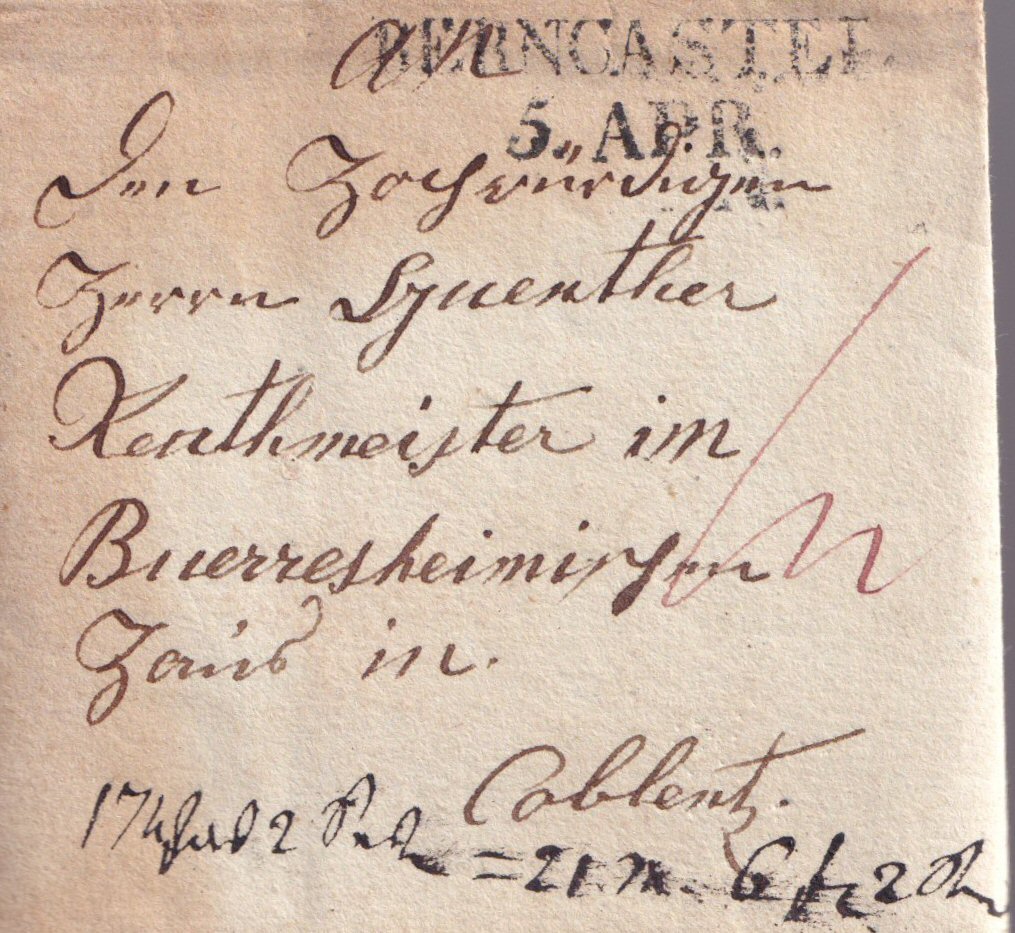 BERNCASTEL
5. APR.
An
Den Hochwürdigen
Herrn Guenther
Renthmeister im
Buerresheimischen
Haus in.
Coblentz.
= 21 6 2